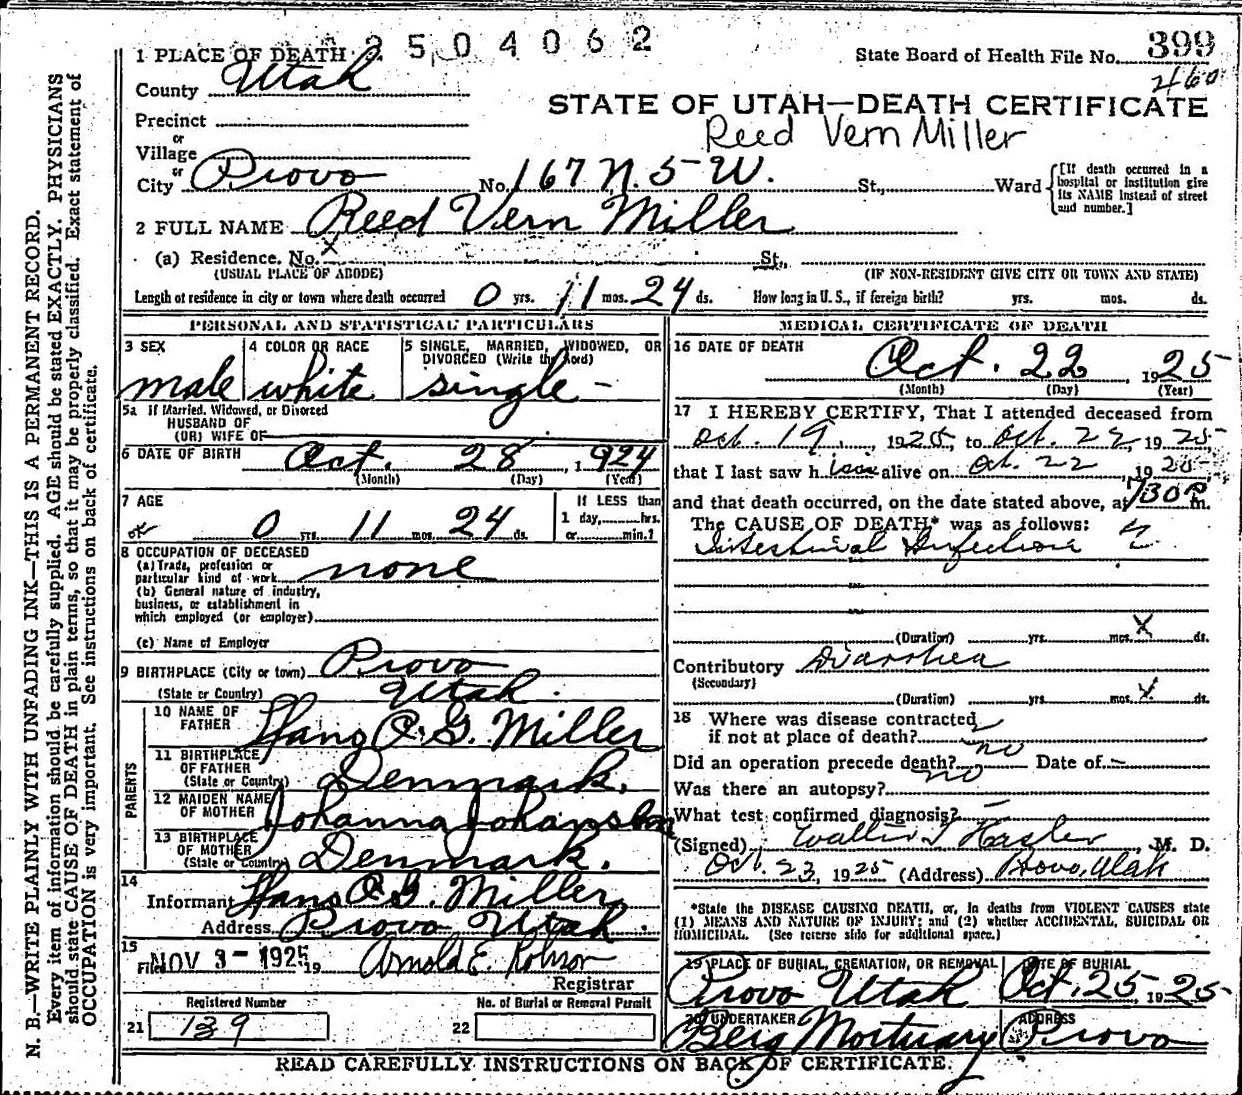 2504062
State Board of Health File No. 399
460
1 PLACE OF DEATH
County Utah
STATE OF UTAH—DEATH CERTIFICATE
Reed Vern Miller
Precinct
or
Village
or
City Provo No. 167 N. 5 W. St., Ward
{[If death occurred in a
hospital or institution give
its NAME instead of street
and number.]
2 FULL NAME Reed Vern Miller
(a) Residence. No. X St.,
(USUAL PLACE OF ABODE) (IF NON-RESIDENT GIVE CITY OR TOWN AND STATE)
Length of residence in city or town where death occurred 0 yrs. 11 mos. 24 ds. How long in U. S., if foreign birth? yrs. mos. ds.
PERSONAL AND STATISTICAL PARTICULARS
3 SEX
male
4 COLOR OR RACE
white
5 SINGLE, MARRIED, WIDOWED, OR
DIVORCED (Write the word)
single -
5a If Married, Widowed, or Divorced
HUSBAND OF
(OR) WIFE OF
6 DATE OF BIRTH Oct. 28, 1924
(Month) (Day) (Year)
7 AGE
or 0 yrs. 11 mos. 24 ds.
If LESS than
1 day, hrs.
or min.?
8 OCCUPATION OF DECEASED
(a) Trade, profession or
particular kind of work none
(b) General nature of industry,
business, or establishment in
which employed (or employer)
(c) Name of Employer
9 BIRTHPLACE (City or town) Provo
(State or Country) Utah.
PARENTS
10 NAME OF
FATHER Hans C. G. Miller
11 BIRTHPLACE
OF FATHER
(State or Country) Denmark.
12 MAIDEN NAME
OF MOTHER Johanna Johanston
13 BIRTHPLACE
OF MOTHER
(State or Country) Denmark.
14
Informant Hans C G. Miller
Address Provo Utah.
15
Filed NOV 3 - 1925 19 Arnold E. Robison
Registrar
Registered Number
21 139
No. of Burial or Removal Permit
22
MEDICAL CERTIFICATE OF DEATH
16 DATE OF DEATH
Oct. 22, 1925
(Month) (Day) (Year)
17 I HEREBY CERTIFY, That I attended deceased from
Oct. 19, 1925 to Oct. 22, 1925
that I last saw him alive on Oct. 22, 1925
and that death occurred, on the date stated above, at 730 P. m.
The CAUSE OF DEATH* was as follows:
Intestinal Infection
(Duration) yrs. mos. X ds.
Contributory Diarrhea
(Secondary)
(Duration) yrs. mos. X ds.
18 Where was disease contracted
if not at place of death?
Did an operation precede death? no Date of —
Was there an autopsy? no
What test confirmed diagnosis? —
(Signed) Walter T Hasler, M. D.
Oct. 23, 1925 (Address) Provo, Utah
*State the DISEASE CAUSING DEATH, or, in deaths from VIOLENT CAUSES state
(1) MEANS AND NATURE OF INJURY; and (2) whether ACCIDENTAL, SUICIDAL OR
HOMICIDAL. (See reverse side for additional space.)
19 PLACE OF BURIAL, CREMATION, OR REMOVAL
Provo Utah
DATE OF BURIAL
Oct. 25, 1925
20 UNDERTAKER
Berg Mortuary
ADDRESS
Provo
READ CAREFULLY INSTRUCTIONS ON BACK OF CERTIFICATE.
N. B.—WRITE PLAINLY WITH UNFADING INK—THIS IS A PERMANENT RECORD.
Every item of information should be carefully supplied. AGE should be stated EXACTLY. PHYSICIANS
should state CAUSE OF DEATH in plain terms, so that it may be properly classified. Exact statement of
OCCUPATION is very important. See instructions on back of certificate.